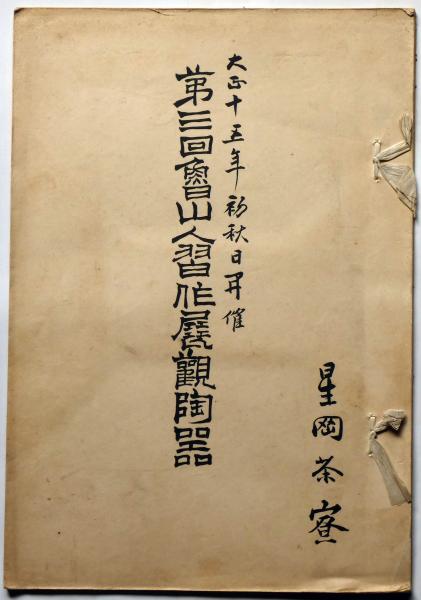 大正十五年初秋日开催
第三回魯山人習作展觀陶器
星岡茶寮